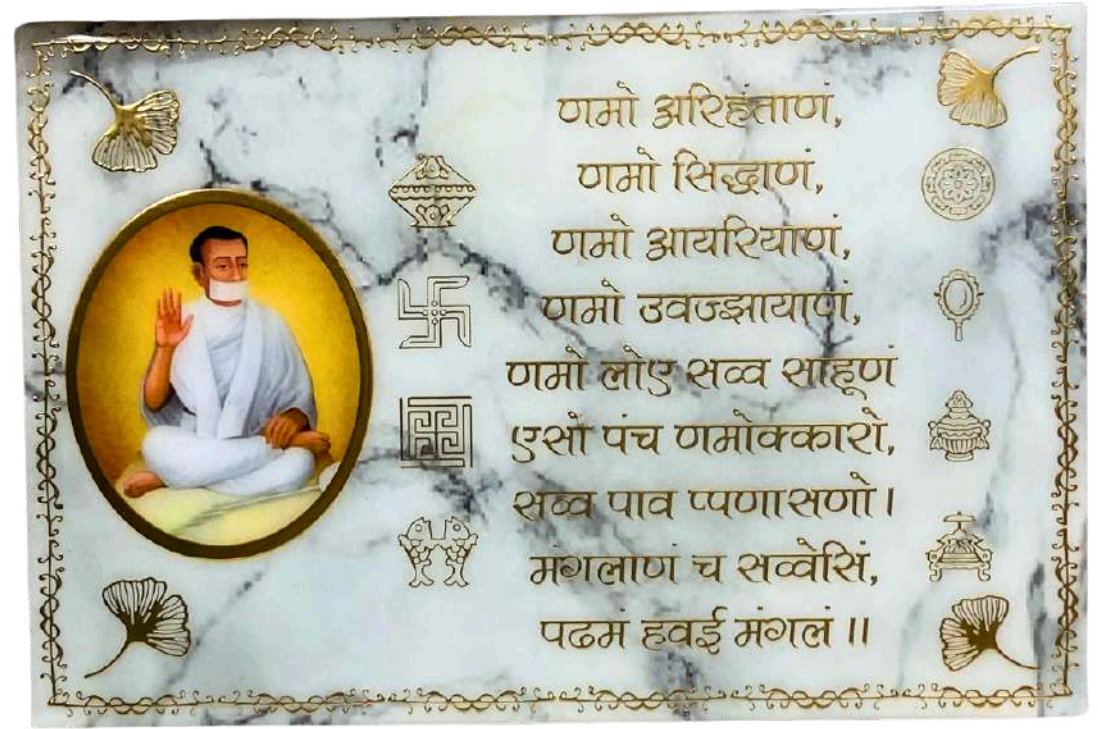 णमो अरिहंताणं,
णमो सिद्धाणं,
णमो आयरियाणं,
णमो उवज्झायाणं,
णमो लोए सव्व साहूणं
एसो पंच णमोक्कारो,
सव्व पाव प्पणासणो।
मंगलाणं च सव्वेसिं,
पढमं हवई मंगलं ॥